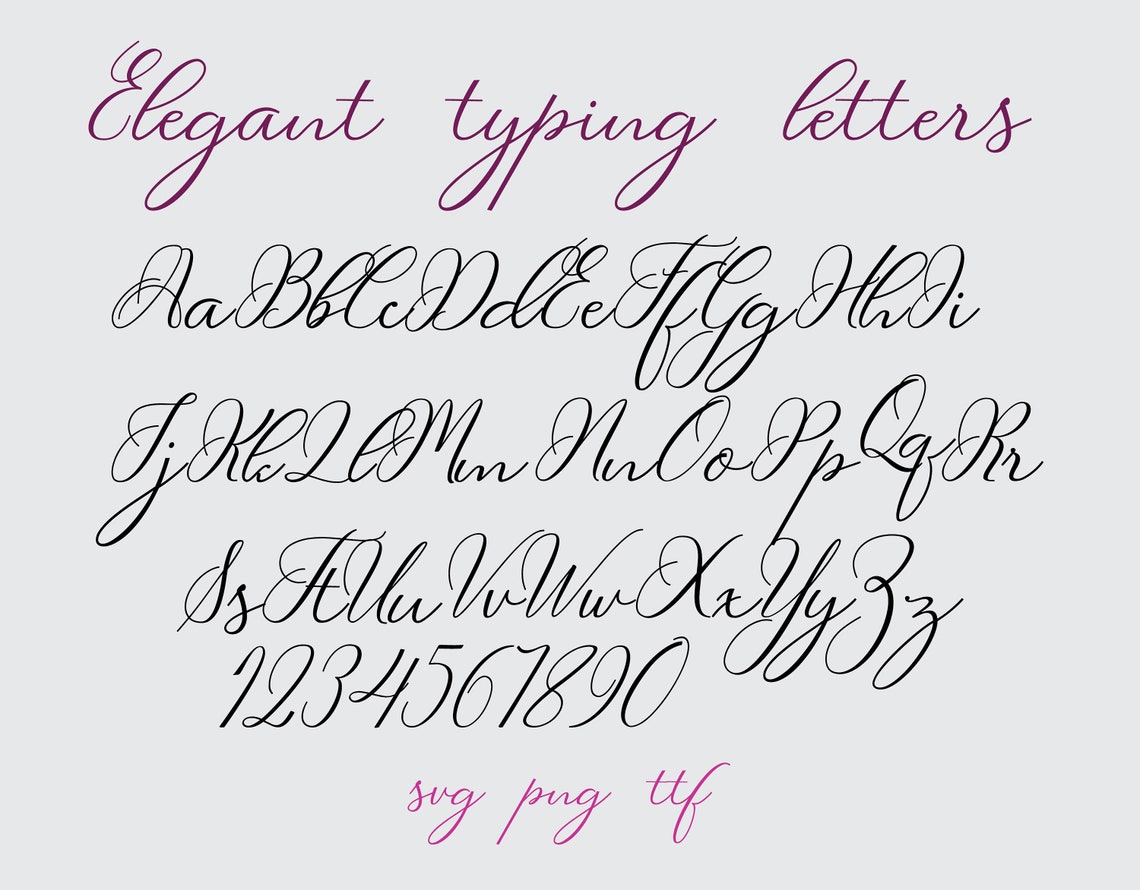 Elegant typing letters
AaBbCcDdEeFfGgHhIi
JjKkLlMmNnOoPpQqRr
SsTtUuVvWwXxYyZz
1234567890
svg png ttf